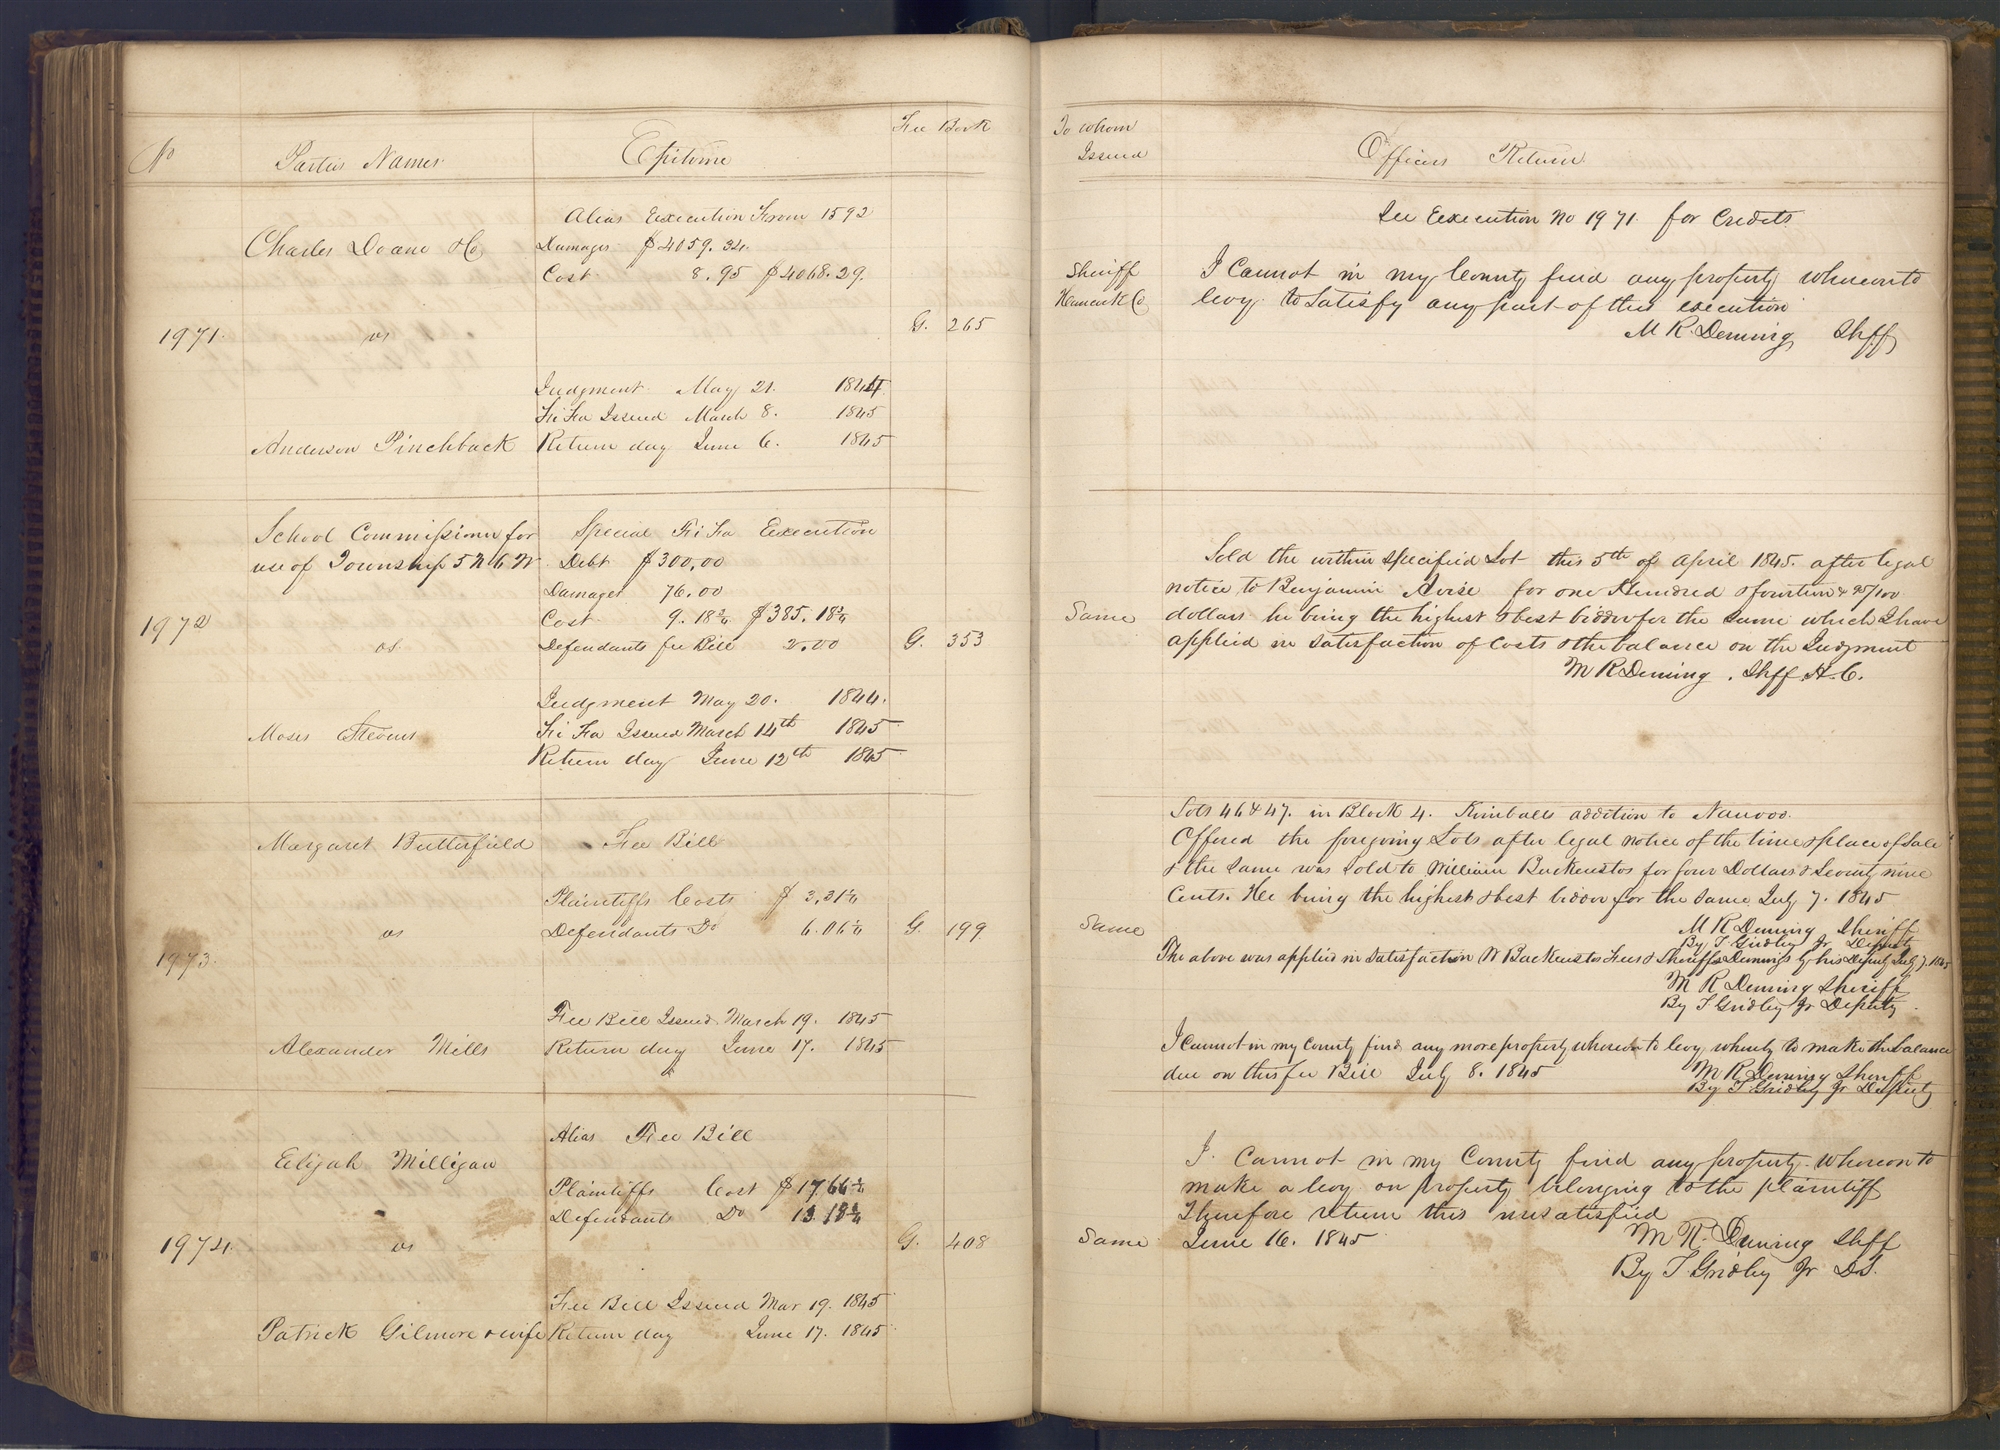 No
Parties Names
Epitome
Fee Book
Alias Execution From 1592
Charles Doane & Co
Damages $4059.34.
Cost 8.95 $4068.29.
1971.
vs
G. 265
Judgment May 21. 1844
Fi Fa Issued March 8. 1845
Anderson Pinchback
Return day June 6. 1845
School Commissioner for
use of Township 5 N 6 W
Special Fi Fa Execution
Debt $300,00
Damages 76.00
Cost 9.18 3/4 $385.18 3/4
1972
vs
Defendants fee Bill 2.00
G. 353
Judgment May 20. 1844.
Moses Stevens
Fi Fa Issued March 14th 1845
Return day June 12th 1845
Margaret Butterfield
Fee Bill
Plaintiffs Costs $3,31 1/4
Defendants Do 6.06 1/4
1973.
vs
G. 199
Fee Bill Issued March 19. 1845
Alexander Mills
Return day June 17. 1845
Alias Fee Bill
Elijah Milligan
Plaintiffs Cost $17,66 1/4
Defendants Do 13.18 3/4
1974.
vs
G. 408
Fee Bill Issued Mar 19. 1845
Patrick Gilmore & wife
Return day June 17. 1845
To whom
Issued
Officers Return
See Execution No 1971. for Credits
Sheriff
Hancock Co
I Cannot in my County find any property whereon to
levy to Satisfy any part of this execution
M R. Deming Shff
Same
Sold the within specified Lot this 5th of April 1845. after legal
notice, to Benjamin Avise for one Hundred & fourteen & 95/100
dollars he being the highest & best bidder for the same which I have
applied in satisfaction of Costs & the balance on the Judgment
M R Deming. Shff H. C.
Lots 46 & 47. in Block 4. Kimballs addition to Nauvoo.
Offered the foregoing Lots after legal notice of the time & place of sale
& the same was sold to William Backenstos for four Dollars & Seventy nine
Cents. He being the highest & best bidder for the same July 7. 1845
Same
M R Deming Sheriff
By T Gridley Jr Deputy
The above was applied in satisfaction W Backenstos Fees & Sheriffs Demings by his Deputy July 7. 1845
M R Deming Sheriff
By T Gridley Jr Deputy.
I Cannot in my County find any more property whereon to levy whereby to make the balance
due on this fee Bill July 8. 1845
M R Deming Sheriff
By T. Gridley Jr Deputy
I. Cannot in my County find any property whereon to
make a levy on property belonging to the plaintiff
Therefore return this unsatisfied
Same
June 16. 1845
M R. Deming Shff
By T. Gridley Jr D.S.